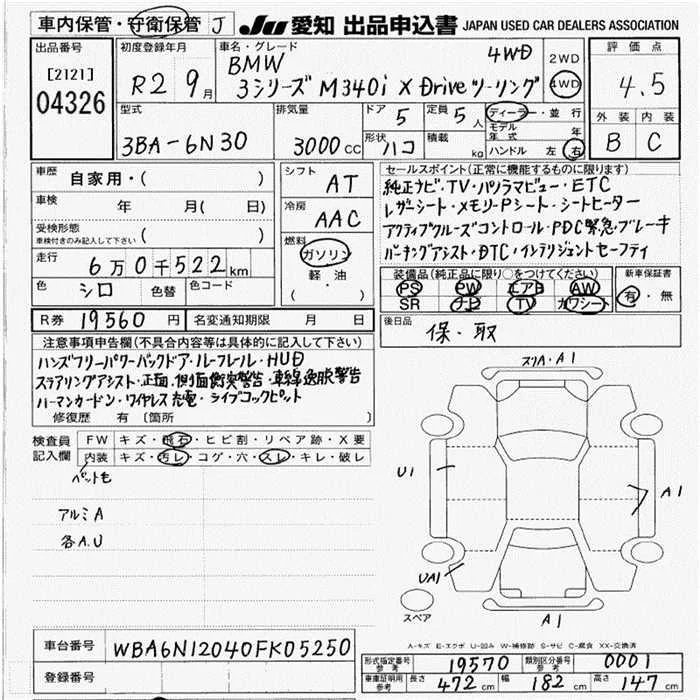 車内保管・守衛保管 J JU 愛知 出品申込書 JAPAN USED CAR DEALERS ASSOCIATION
出品番号
[2121]
04326
初度登録年月
R2 9月
車名・グレード
BMW 4WD
3シリーズ M340i X Drive ツーリング
2WD
4WD
評価点
4.5
外装 内装
B C
型式
3BA-6N30
排気量
3000cc
ドア 5
形状 ハコ
定員 5人
積載 kg
ディーラー・並行
モデル年式 年
ハンドル 左 右
車歴
自家用・( )
車検 年 月( 日)
受検形態
車検付きのみ記入して下さい ( )
走行 6万0千522km
色 シロ 色替 色コード
シフト AT
冷房 AAC
燃料
ガソリン
軽油
( ・ )
セールスポイント(正常に機能するものに限ります)
純正ナビ・TV・パノラマビュー・ETC
レザーシート・メモリーPシート・シートヒーター
アクティブクルーズコントロール・PDC緊急ブレーキ
パーキングアシスト・DTC・インテリジェントセーフティ
装備品(純正品に限り○をつけてください)
PS PW エアB AW
SR ナビ TV カワシート
新車保証書
有・無
R券 19560円 名変通知期限 月 日
後日品 保・取
注意事項申告欄(不具合内容等は具体的に記入して下さい)
ハンズフリーパワーバックドア・ルーフレール・HUD
ステアリングアシスト・正面、側面衝突警告・車線逸脱警告
ハーマンカードン・ワイヤレス充電・ライブコックピット
修復歴 有 〔箇所
検査員記入欄
FW キズ・飛石・ヒビ割・リペア跡・X要
内装 キズ・汚レ・コゲ・穴・スレ・キレ・破レ
ペット毛
アルミA
各A.U
スリA・A1
U1
A1
UA1
A1
スペア
A-キズ E-エクボ U-凹み W-補修跡 S-サビ C-腐食 XX-交換済
車台番号 WBA6N12040FK05250
登録番号
形式指定番号 参考 19570 類別区分番号 参考 0001
車庫証明用 参考 長さ 472cm 幅 182cm 高さ 147cm